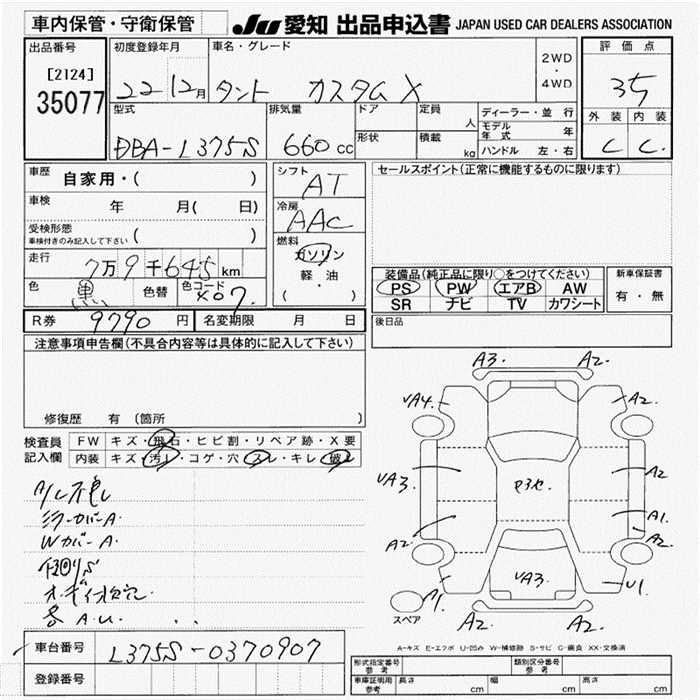 車内保管・守衛保管 JU 愛知 出品申込書 JAPAN USED CAR DEALERS ASSOCIATION
出品番号 初度登録年月 車名・グレード 2WD・4WD 評価点
[2124] 22 12月 タント カスタム X 35
35077
型式 排気量 ドア 定員 人 ディーラー・並行 外装 内装
DBA-L375S 660 cc 形状 積載 kg モデル年式 年 C C
ハンドル 左・右
車歴 自家用・( ) シフト AT セールスポイント(正常に機能するものに限ります)
車検 年 月( 日) 冷房 AAC
受検形態 ( )
車検付きのみ記入して下さい
燃料 ガソリン
走行 7万9千645km 軽・油
( )
装備品(純正品に限り○をつけてください) 新車保証書
色 黒 色替 色コード X07 PS PW エアB AW 有・無
SR ナビ TV カワシート
R券 9790円 名変期限 月 日 後日品
注意事項申告欄(不具合内容等は具体的に記入して下さい)
修復歴 有 (箇所 )
検査員 FW キズ・飛石・ヒビ割・リペア跡・X要
記入欄 内装 キズ・汚レ・コゲ・穴・スレ・キレ・破レ
ミラーカバーA
WカバーA
A3. A2.
A4. A2.
A3. A2
A1.
A2. A2
A3
A1. U1
A2. A2.
スペア
A-キズ E-エクボ U-凹み W-補修跡 S-サビ C-腐食 XX-交換済
車台番号 L375S-0370907
登録番号
形式指定番号 参考 類別区分番号 参考
車庫証明用 参考 長さ cm 幅 cm 高さ cm